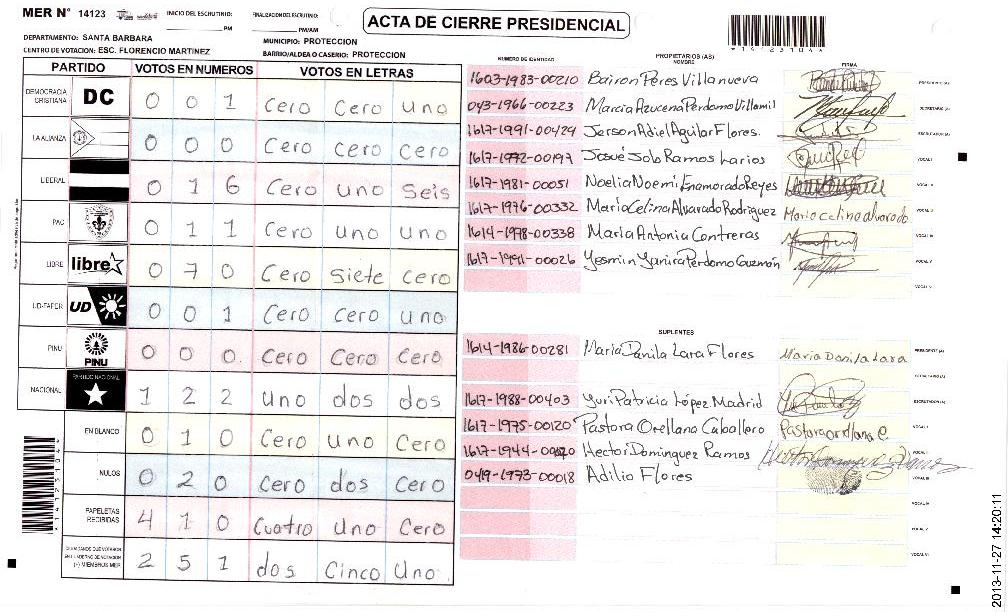 MER N° 14123 INICIO DEL ESCRUTINIO: PM FINALIZACION DEL ESCRUTINIO: PM/AM
ACTA DE CIERRE PRESIDENCIAL
DEPARTAMENTO: SANTA BARBARA MUNICIPIO: PROTECCION
CENTRO DE VOTACION: ESC. FLORENCIO MARTINEZ BARRIO/ALDEA O CASERIO: PROTECCION
*14123104*
PARTIDO VOTOS EN NUMEROS VOTOS EN LETRAS
DEMOCRACIA CRISTIANA DC 0 0 1 Cero Cero uno
LA ALIANZA 0 0 0 Cero cero cero
LIBERAL 0 1 6 Cero uno Seis
PAC 0 1 1 Cero uno uno
LIBRE libre 0 7 0 Cero Siete cero
UD-FAPER UD 0 0 1 Cero cero uno
PINU PINU 0 0 0 Cero Cero Cero
NACIONAL PARTIDO NACIONAL 1 2 2 uno dos dos
EN BLANCO 0 1 0 Cero uno Cero
NULOS 0 2 0 Cero dos Cero
PAPELETAS RECIBIDAS 4 1 0 Cuatro uno Cero
CIUDADANOS QUE VOTARON EN CUADERNO DE VOTACION (+) MIEMBROS MER 2 5 1 dos Cinco Uno.
NUMERO DE IDENTIDAD PROPIETARIOS (AS) NOMBRE FIRMA
1603-1983-00210 Bairon Peres Villanueva PRESIDENTE (A)
043-1966-00223 Marcia Azucena Perdomo Villamil SECRETARIO (A)
1617-1991-00429 Jerson Adiel Aguilar Flores. ESCRUTADOR (A)
1617-1972-00197 Josué Job Ramos Larios VOCAL I
1617-1981-00051 Noelia Noemí Enamorado Reyes VOCAL II
1617-1976-00332 María Celina Alvarado Rodríguez Maria celina alvarado
1614-1978-00338 María Antonia Contreras
1617-1991-00026 Yesmin Yanira Perdomo Guzmón
SUPLENTES
1614-1986-00281 María Danila Lara Flores Maria Danila Lara PRESIDENTE (A)
SECRETARIO (A)
1617-1988-00403 Yuri Patricia López Madrid ESCRUTADOR (A)
1617-1975-00120 Pastora Orellana Caballero Pastora orellana C. VOCAL I
1617-1944-00020 Hector Dominguez Ramos
049-1973-00018 Adilio Flores VOCAL III
VOCAL IV
VOCAL V
VOCAL VI
2013-11-27 14:20:11